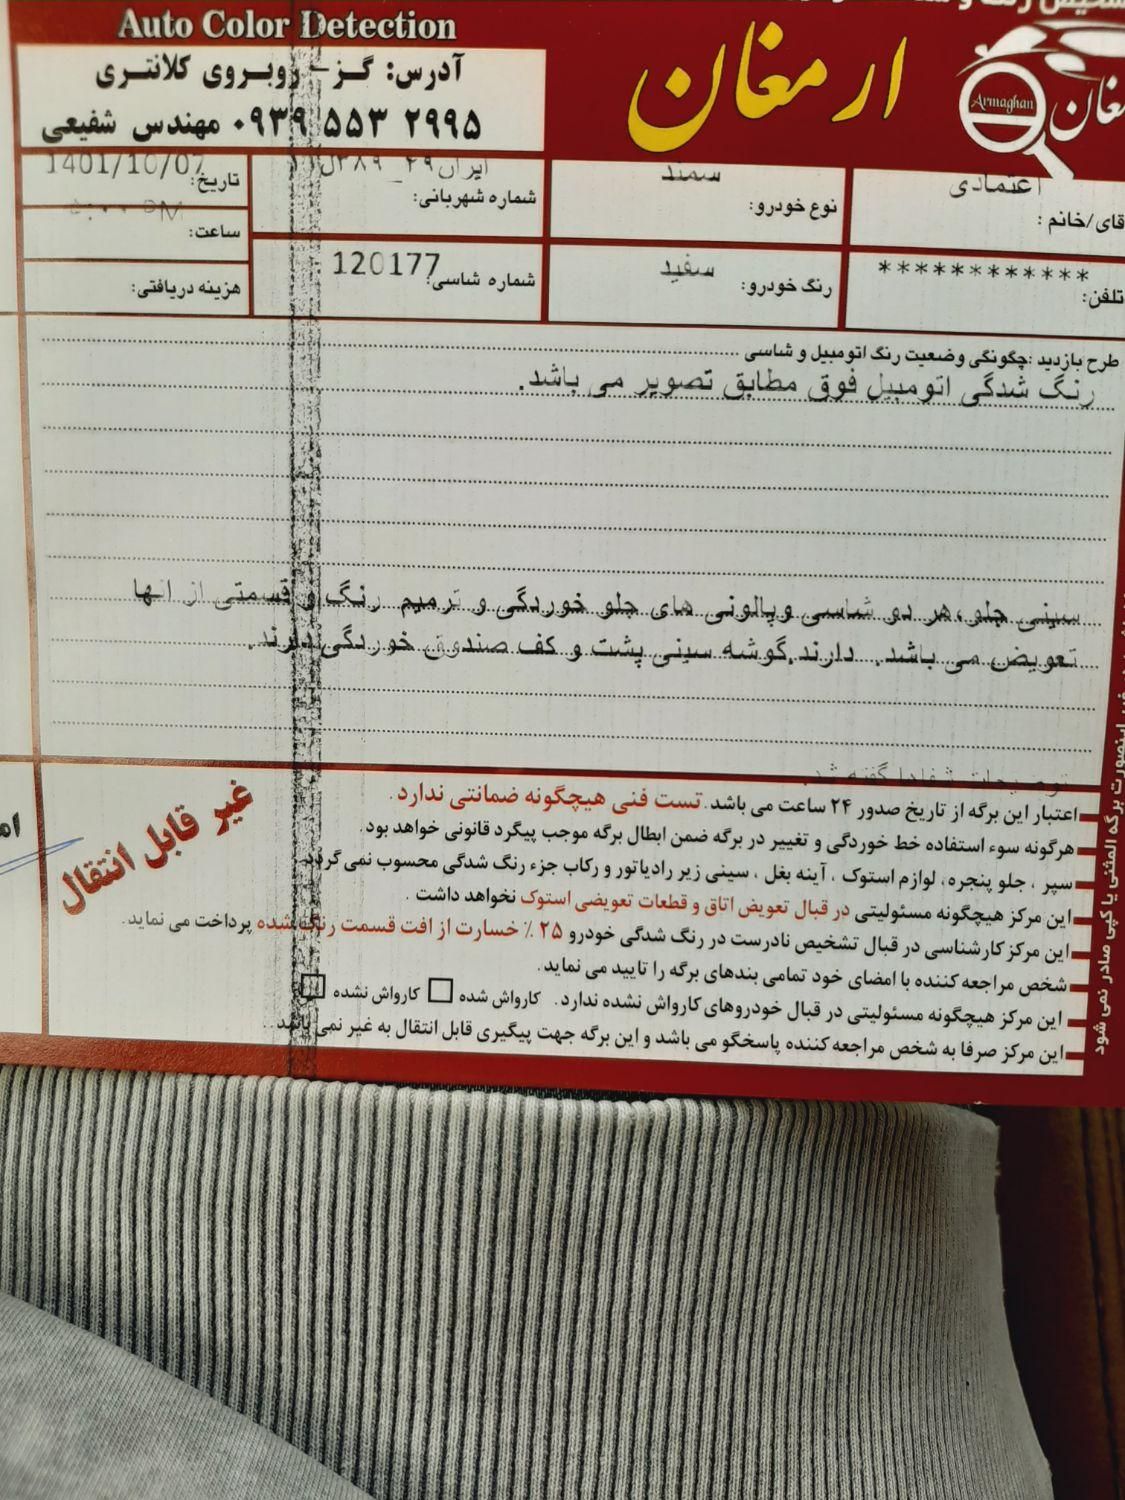 Auto Color Detection
ارمغان
Armaghan
آدرس: گز - روبروی کلانتری
۰۹۳۹ ۵۵۳ ۲۹۹۵ مهندس شفیعی
قای/خانم : اعتمادی
نوع خودرو: سمند
شماره شهربانی:
تاریخ: 1401/10/07
ساعت:
تلفن: ************
رنگ خودرو: سفید
شماره شاسی: 120177
هزینه دریافتی:
طرح بازدید :چگونگی وضعیت رنگ اتومبیل و شاسی
رنگ شدگی اتومبیل فوق مطابق تصویر می باشد.
سینی جلو،هر دو شاسی وپالونی های جلو خوردگی و ترمیم رنگ و قسمتی از انها
تعویض می باشد. دارند.گوشه سینی پشت و کف صندوق خوردگی دارند.
توضیحات شفاها گفته شد.
اعتبار این برگه از تاریخ صدور ۲۴ ساعت می باشد. تست فنی هیچگونه ضمانتی ندارد.
هرگونه سوء استفاده خط خوردگی و تغییر در برگه ضمن ابطال برگه موجب پیگرد قانونی خواهد بود.
سپر ، جلو پنجره، لوازم استوک ، آینه بغل ، سینی زیر رادیاتور و رکاب جزء رنگ شدگی محسوب نمی گردد
این مرکز هیچگونه مسئولیتی در قبال تعویض اتاق و قطعات تعویضی استوک نخواهد داشت .
این مرکز کارشناسی در قبال تشخیص نادرست در رنگ شدگی خودرو ۲۵٪ خسارت از افت قسمت رنگ شده پرداخت می نماید.
شخص مراجعه کننده با امضای خود تمامی بندهای برگه را تایید می نماید.
این مرکز هیچگونه مسئولیتی در قبال خودروهای کارواش نشده ندارد. کارواش شده کارواش نشده
این مرکز صرفا به شخص مراجعه کننده پاسخگو می باشد و این برگه جهت پیگیری قابل انتقال به غیر نمی باشد.
غیر قابل انتقال